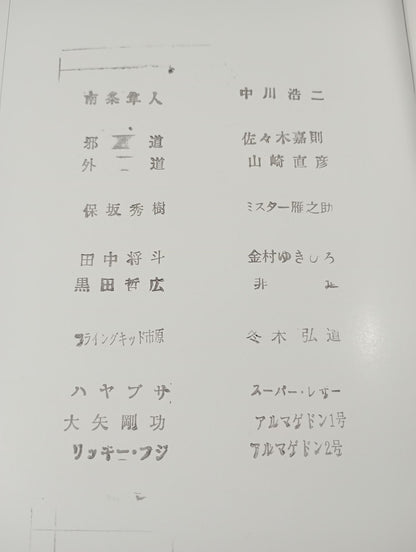 南条隼人 中川浩二
邪道 佐々木嘉則
外道 山崎直彦
保坂秀樹 ミスター雁之助
田中将斗 金村ゆきひろ
黒田哲広 非道
フライングキッド市原 冬木弘道
ハヤブサ スーパー・レザー
大矢剛功 アルマゲドン1号
リッキー・フジ アルマゲドン2号